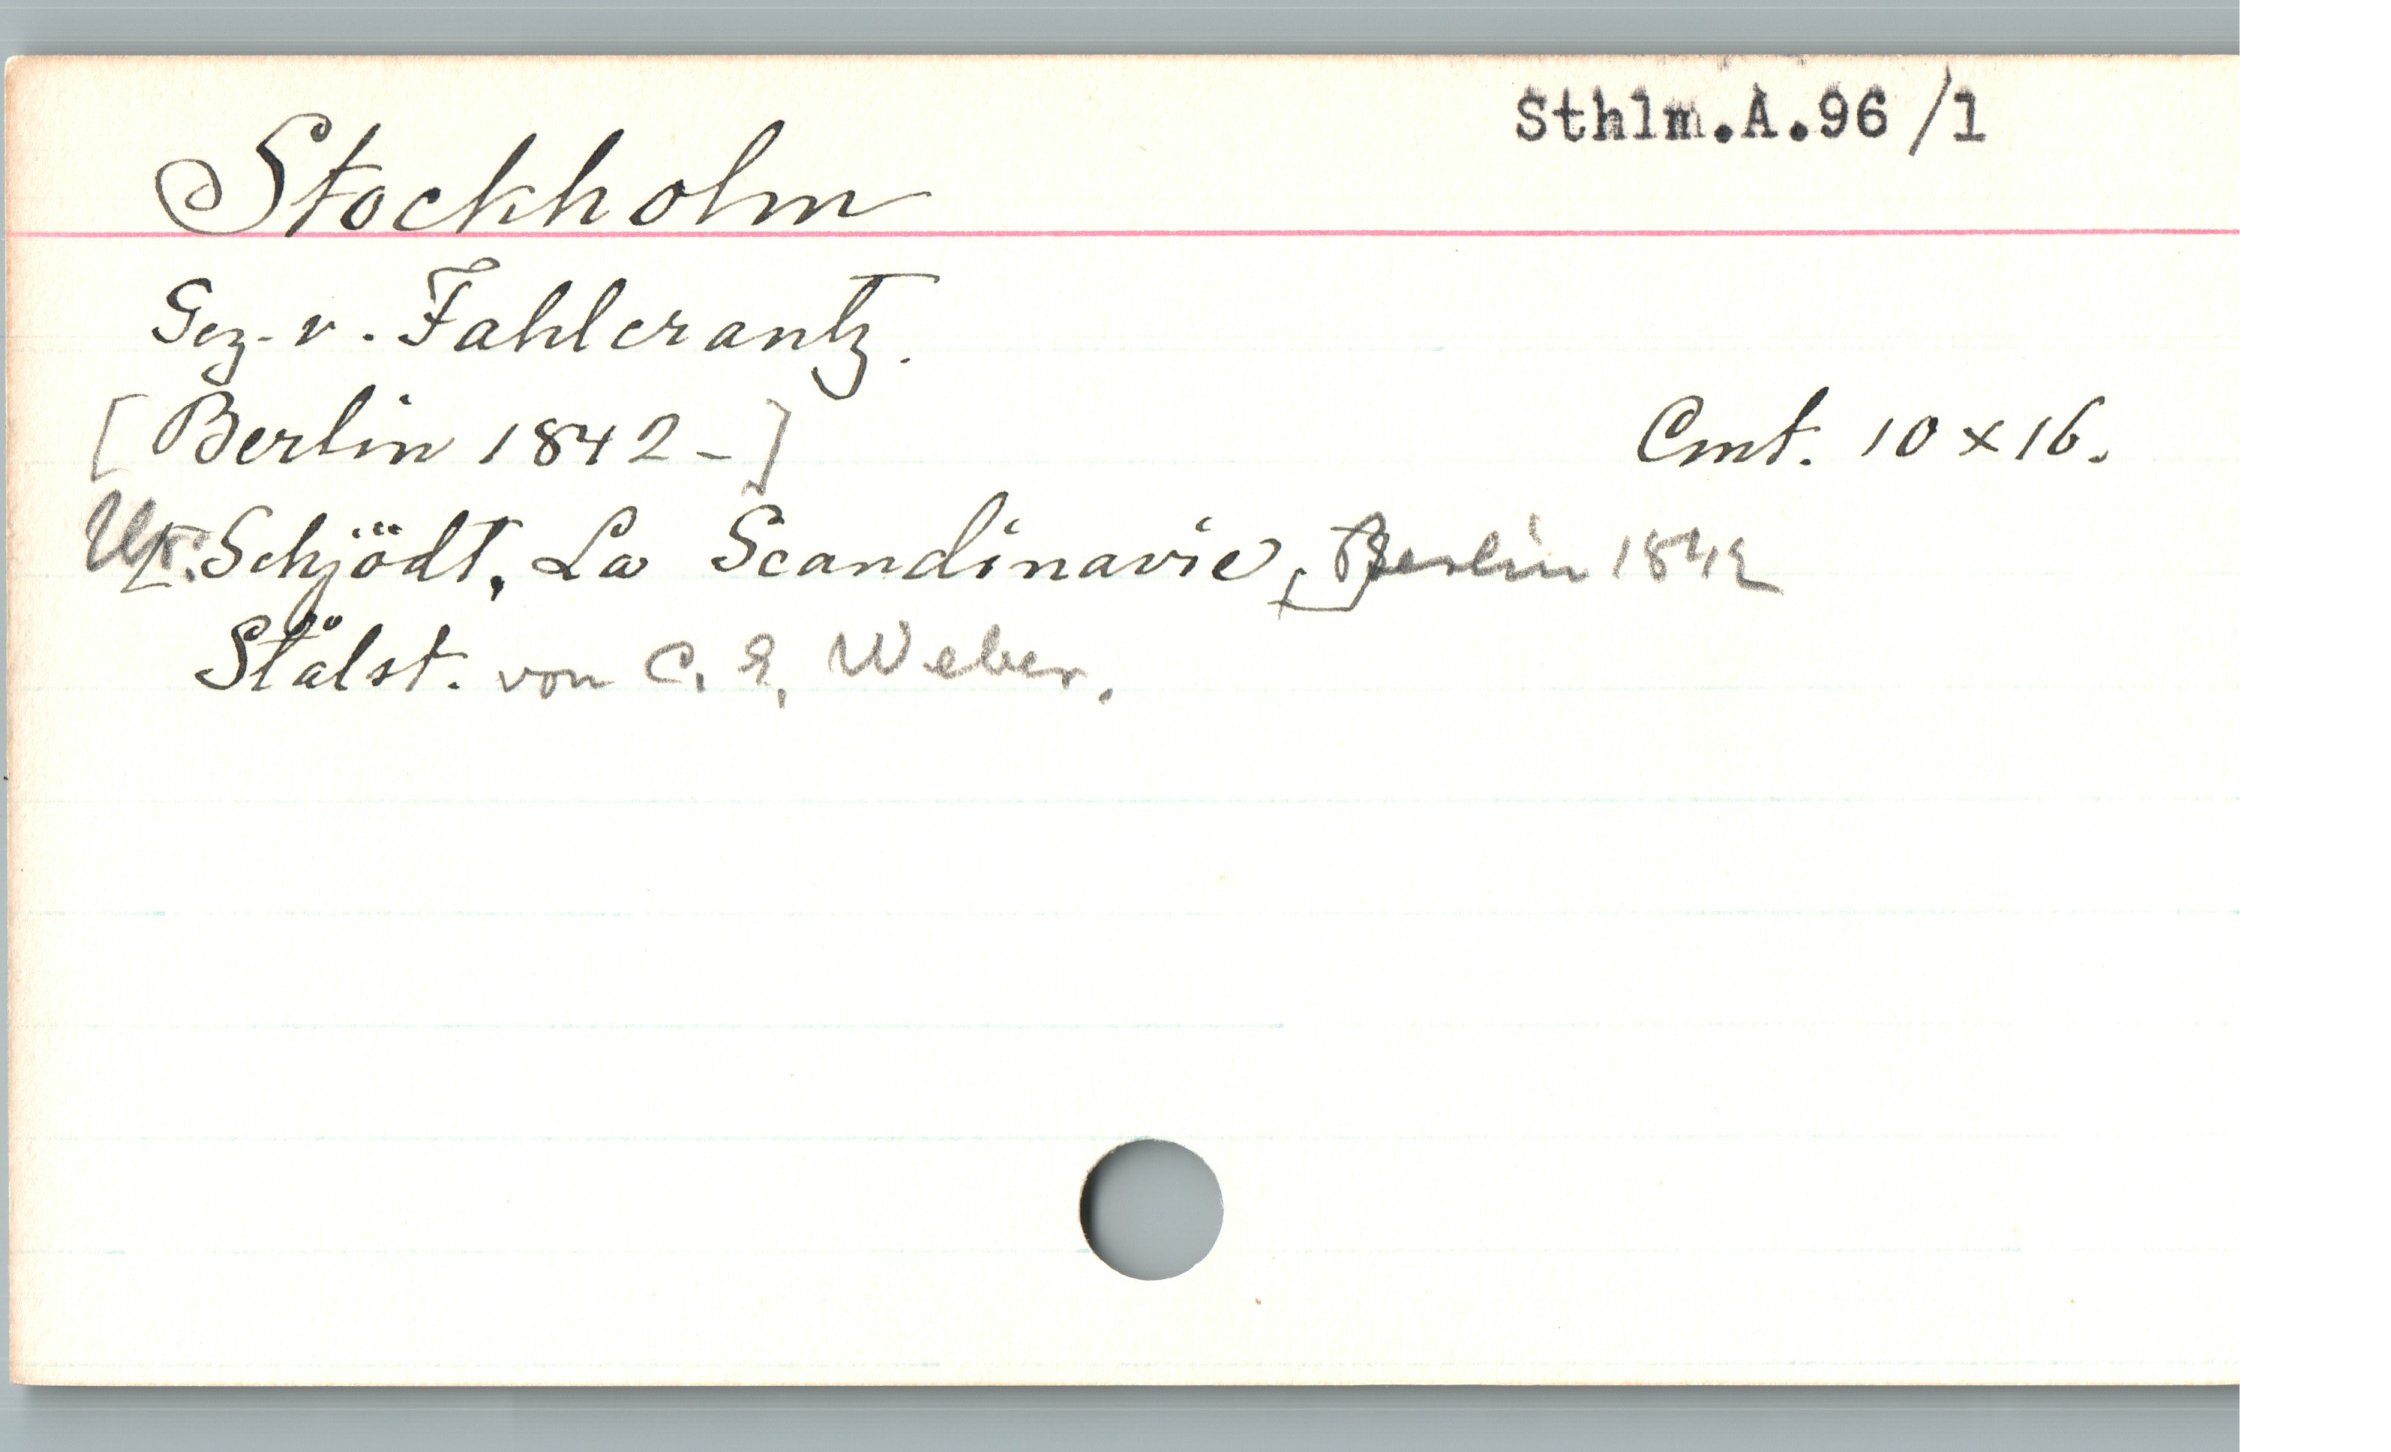 Sthlm.A.96 /1
Stockholm
Gez. v. Fahlcrantz.
[Berlin 1842-] Cmt. 10 x 16.
Ur: Schjödt, La Scandinavie, Berlin 1842
Stålst. von C. E. Weber.